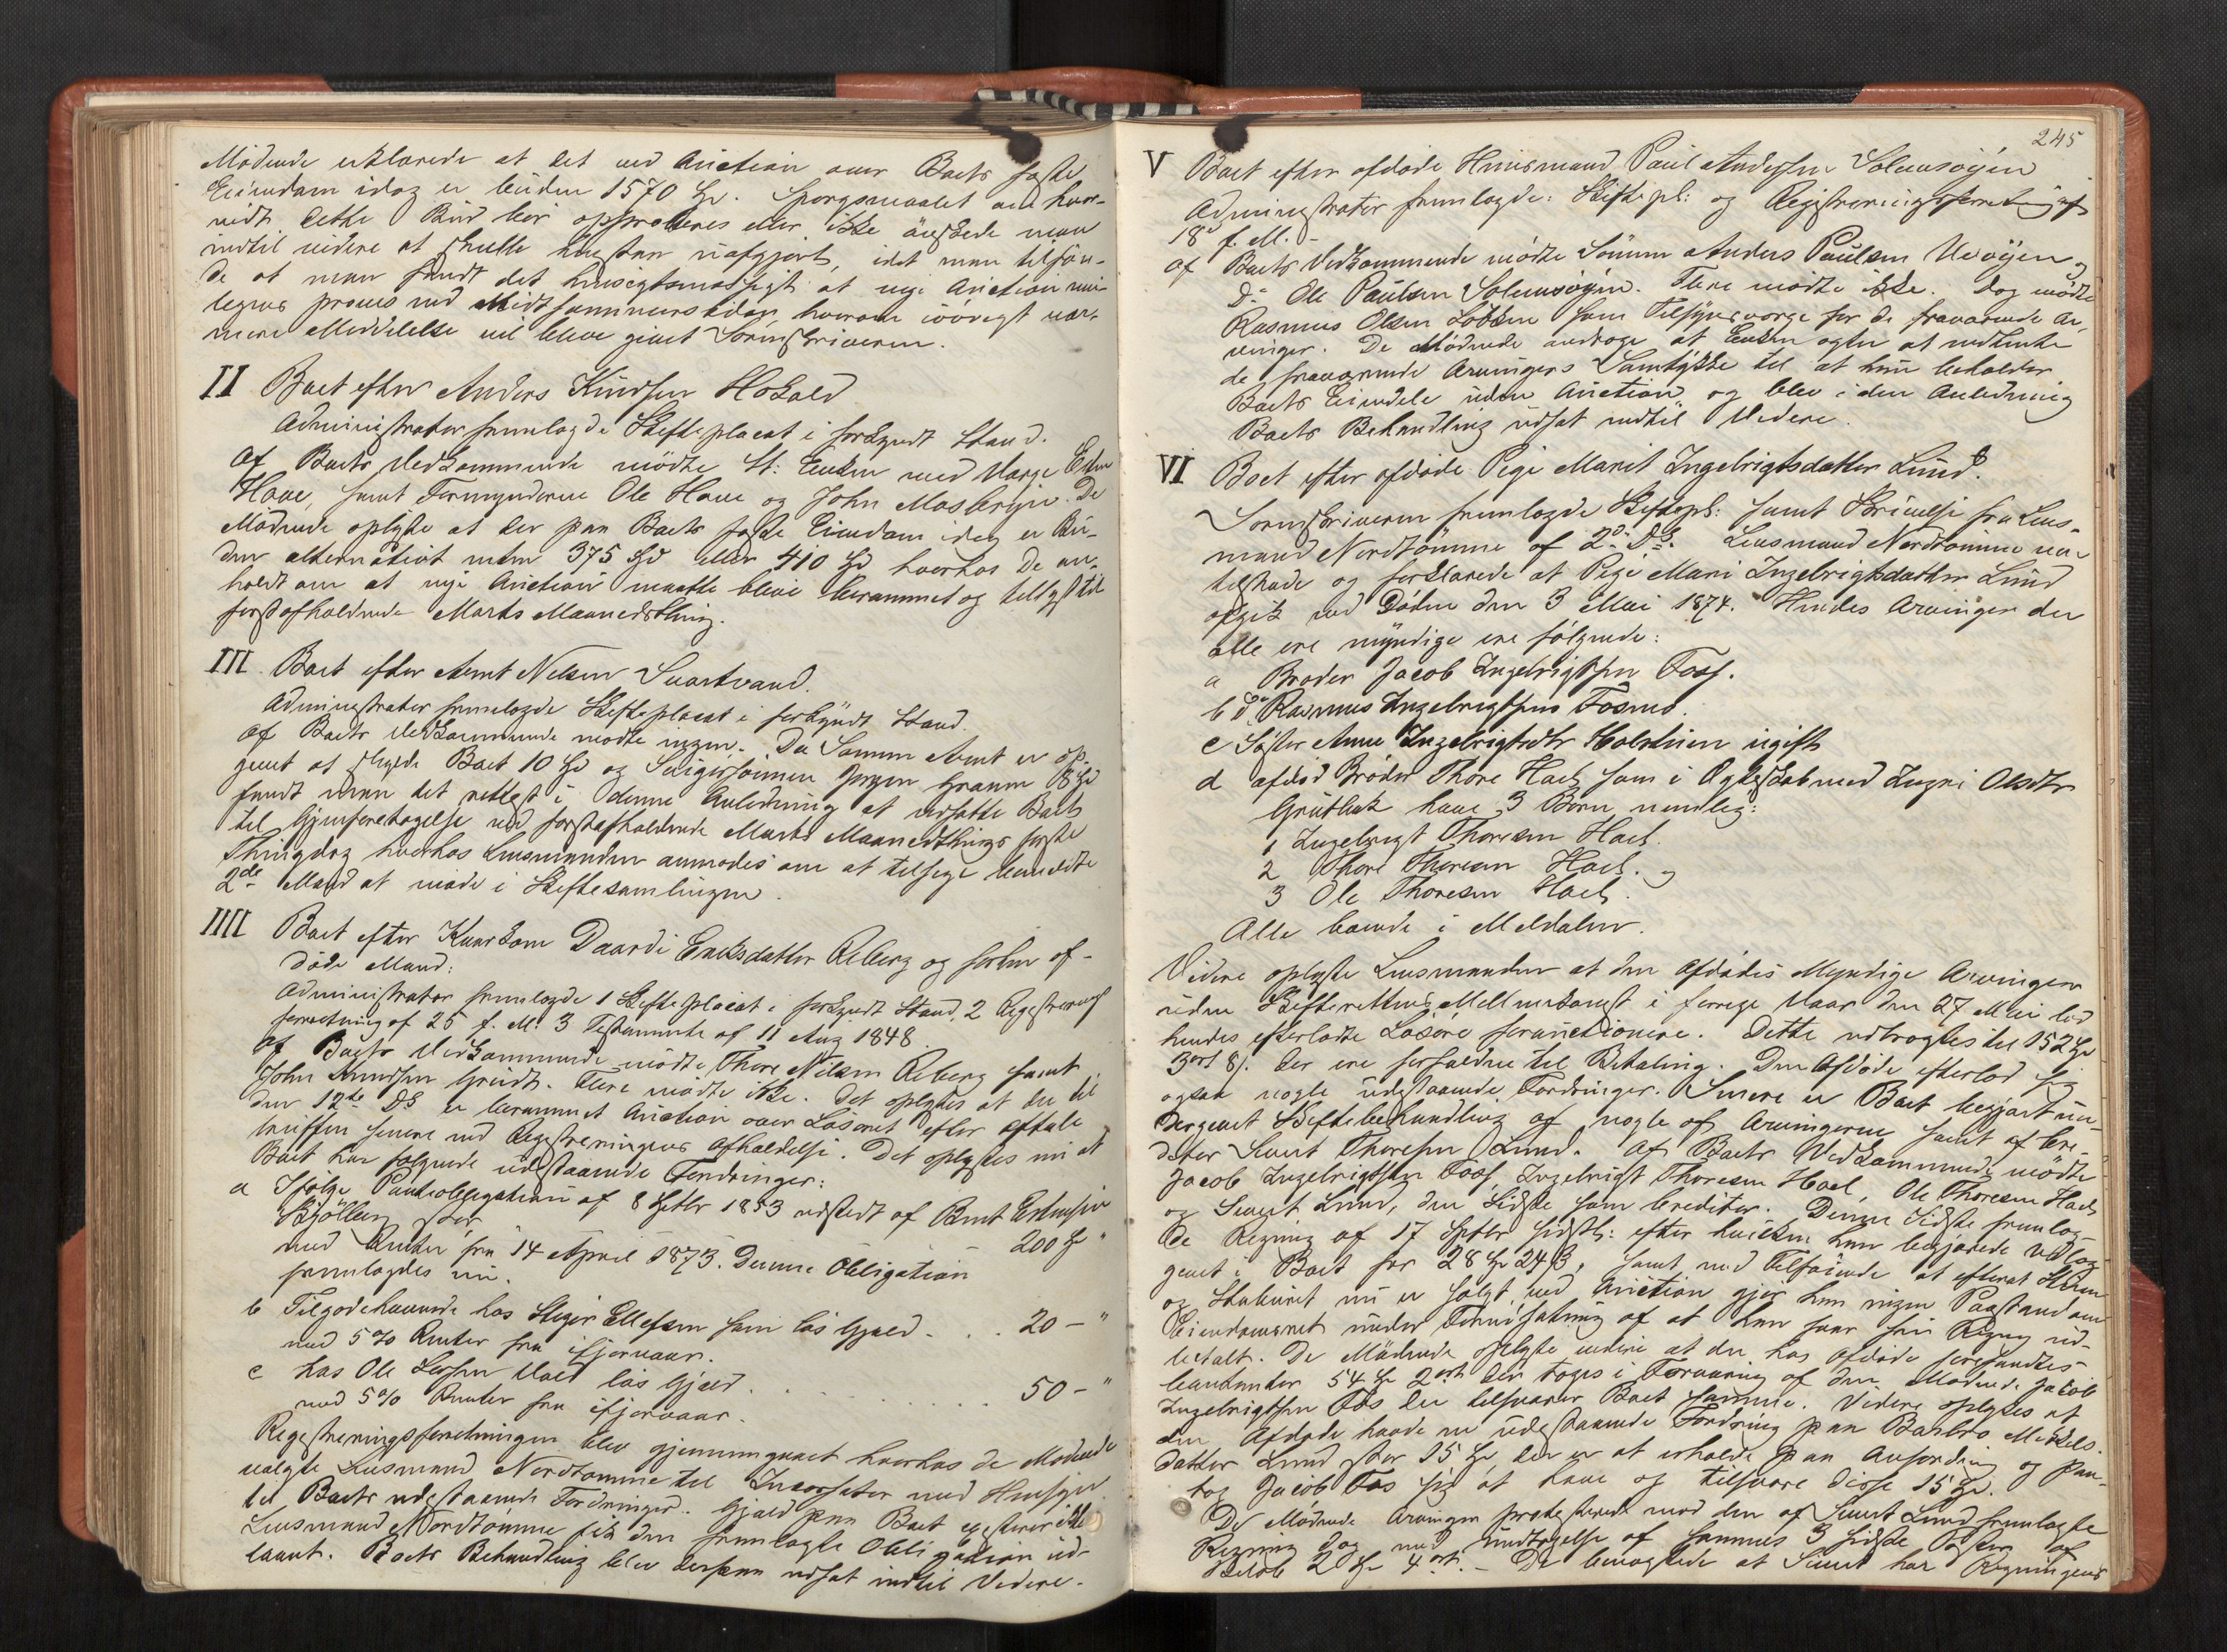 Mødende erklærede at det ved Auction over Boets faste
Eiendom idag er buden 1570 Sp. Spørgsmaalet om hvor-
vidt dette Bud bør approberes eller ikke ønskede man
indtil videre at skulle henstaa uafgjort, idet man tilføi-
de at man fandt det hensigtsmæssigt at nye Auction
prøves ved Midtsommerstider, hvorom iøvrigt nær-
mere Meddelelse vil blive givet Sorenskriveren.
II Boet efter Anders Knudsen Hokald
Administrator fremlagde Skifteplacat i forkyndt Stand.
Af Boets Vedkommende mødte St: Enken med Værge Esten
Hove, samt Formynderne Ole Hove og John Mosbryn. De
Mødende oplyste at der paa Boets faste Eiendom idag er Bu-
den alternativt mellem 375 Spd eller 410 Spd hvorhos de an-
holdt om at nye Auction maatte blive berammet og tillyst til
førstafholdende Marts Maanedsthing.
III Boet efter Arnt Nilsen Svartvand.
Administrator fremlagde Skifteplacat i forkyndt Stand.
Af Boets Vedkommende mødte ingen. Da Sønnen Arnt er op-
givet at skylde Boet 10 Spd og Svigersønnen Jørgen Graam 18 Spd
fandt man det rettest i denne Anledning at udsætte Boets
til Gjenforetagelse ved førstafholdende Marts Maanedthings første
Thingdag hvorhos Lensmanden anmodes om at tilsige bemeldte
2de Mænd at møde i Skiftesamlingen.
IIII Boet efter Kaarkone Daardi Eriksdatter Aeberg og forhen af-
døde Mand:
Administrator fremlagde 1 Skifteplacat i forkyndt Stand, 2 Registrerings
forretning af 25 f. M. 3 Testamente af 11 Aug 1848.
Af Boets Vedkommende mødte Thore Nilsen Aeberg samt
John Knudsen Grudt. Flere mødte ikke. Det oplystes at der til
den 12te Ds er berammet Auction over Løsøret efter Aftale
truffen senere ved Registreringens Afholdelse. Det oplystes nu at
Boet har følgende udestaaende Fordringer:
a Ifølge Panteobligation af 8 Septbr 1853 udstedt af Bernt Estensen
Skjølberg stor 200 Sp "
med Renter fra 14 April 1873. Denne Obligation
fremlagdes nu.
b Tilgodehavende hos Steger Ellefsen som løs Gjæld . . . 20 – "
med 5 % Renter fra ifjorvaar.
c hos Ole Larsen Vold løs Gjæld . . . 50 – "
med 5 % Renter fra ifjorvaar.
Registreringsforretningen blev gjennemgaaet hvorhos de Mødende
valgte Lensmand Nordtømme til Incassator med Hensyn
til Boets udestaaende Fordringer. Gjæld paa Boet existerer ikke
Lensmand Nordtømme fik den fremlagte Obligation ud-
laant. Boets Behandling blev derpaa udsat indtil Videre.
245
V Boet efter afdøde Huusmand Paul Andersen Solemsøyen
Administrator fremlagde: Skiftepl: og Registreringsforretning af
18de f. M. –
Af Boets Vedkommende mødte Sønnen Anders Paulsen Uvøyen og
do Ole Paulsen Solemsøyen. Flere mødte ikke. Dog mødte
Rasmus Olsen Løkken som Tilsynsværge for de fraværende Ar-
vinger. De Mødende androge at Enken agter at indhente
de fraværende Arvingers Samtykke til at hun beholder
Boets Eiendele uden Auction, og blev i den Anledning
Boets Behandling udsat indtil Videre.
VI Boet efter afdøde Pige Marit Ingebrigtsdatter Lund.
Sorenskriveren fremlagde Skiftepl: samt Skrivelse fra Lens-
mand Nordtømme af 2d Ds. Lensmand Nordtømme var
tilstede og forklarede at Pige Mari Ingebrigtsdatter Lund
afgik ved Døden den 3 Mai 1874. Hendes Arvinger der
alle ere myndige ere følgende:
a Broder Jacob Ingebrigtsen Foss.
b do Rasmus Ingebrigtsen Fosmo.
c Søster Anne Ingebrigtsdtr Holsteien ugift
d afdød Broder Thore Hoel som i Ægteskab med Ingri Olsdtr
Grutbak have 3 Børn nemlig:
1 Ingebrigt Thoresen Hoel.
2 Thore Thoresen Hoel. og
3 Ole Thoresen Hoel.
Alle boende i Meldalen.
Videre oplyste Lensmanden at den Afdødes Myndige Arvinger
uden Skifterettens Mellemkomst i forrige Vaar den 27 Mai lod
hendes efterladte Løsøre forauctionere. Dette udbragtes til 152 Sp
3 ort 8 s. der ere forfaldne til Betaling. Den Afdøde efterlod sig
ogsaa nogle udestaaende Fordringer. Senere er Boet begjært un-
dergivet Skiftebehandling af nogle af Arvingerne samt af Cre-
ditor Sivert Thoresen Lund. Af Boets Vedkommende mødte
Jacob Ingebrigtsen Foss, Ingebrigt Thoresen Hoel, Ole Thoresen Hoel
og Sivert Lund, den Sidste som Creditor. Denne Sidste fremlag-
de Regning af 17 Septbr sidstl: efter hvilken han begjærede Udlæg
givet i Boet for 28 Sp 24 s, samt med Tilføiende at efterat Stuen
og Stabburet nu er solgt ved Auction gjør han ingen Paastand om
Eiendomsret under Forudsætning af at han faar sin Regning ud-
betalt. De Mødende oplyste videre at der hos Afdøde forefandtes
contanter 54 Sp 2 ort der toges i Forvaring af den Mødende Jacob
Ingebrigtsen Fos der tilsvarer Boet samme. Videre oplystes at
den Afdøde havde en udestaaende Fordring paa Barbro Mikkels-
datter Lund stor 15 Sp, der er at erholde paa Anfordring og paa-
tog Jacob Fos sig at have og tilsvare disse 15 Sp.
De Mødende Arvinger protesterede mod den af Sivert Lund fremlagte
Regning dog med Undtagelse af sammes 3 sidste Poster af
Beløb 2 Sp 4 ort. – De benegtede at Sivert har Regningens